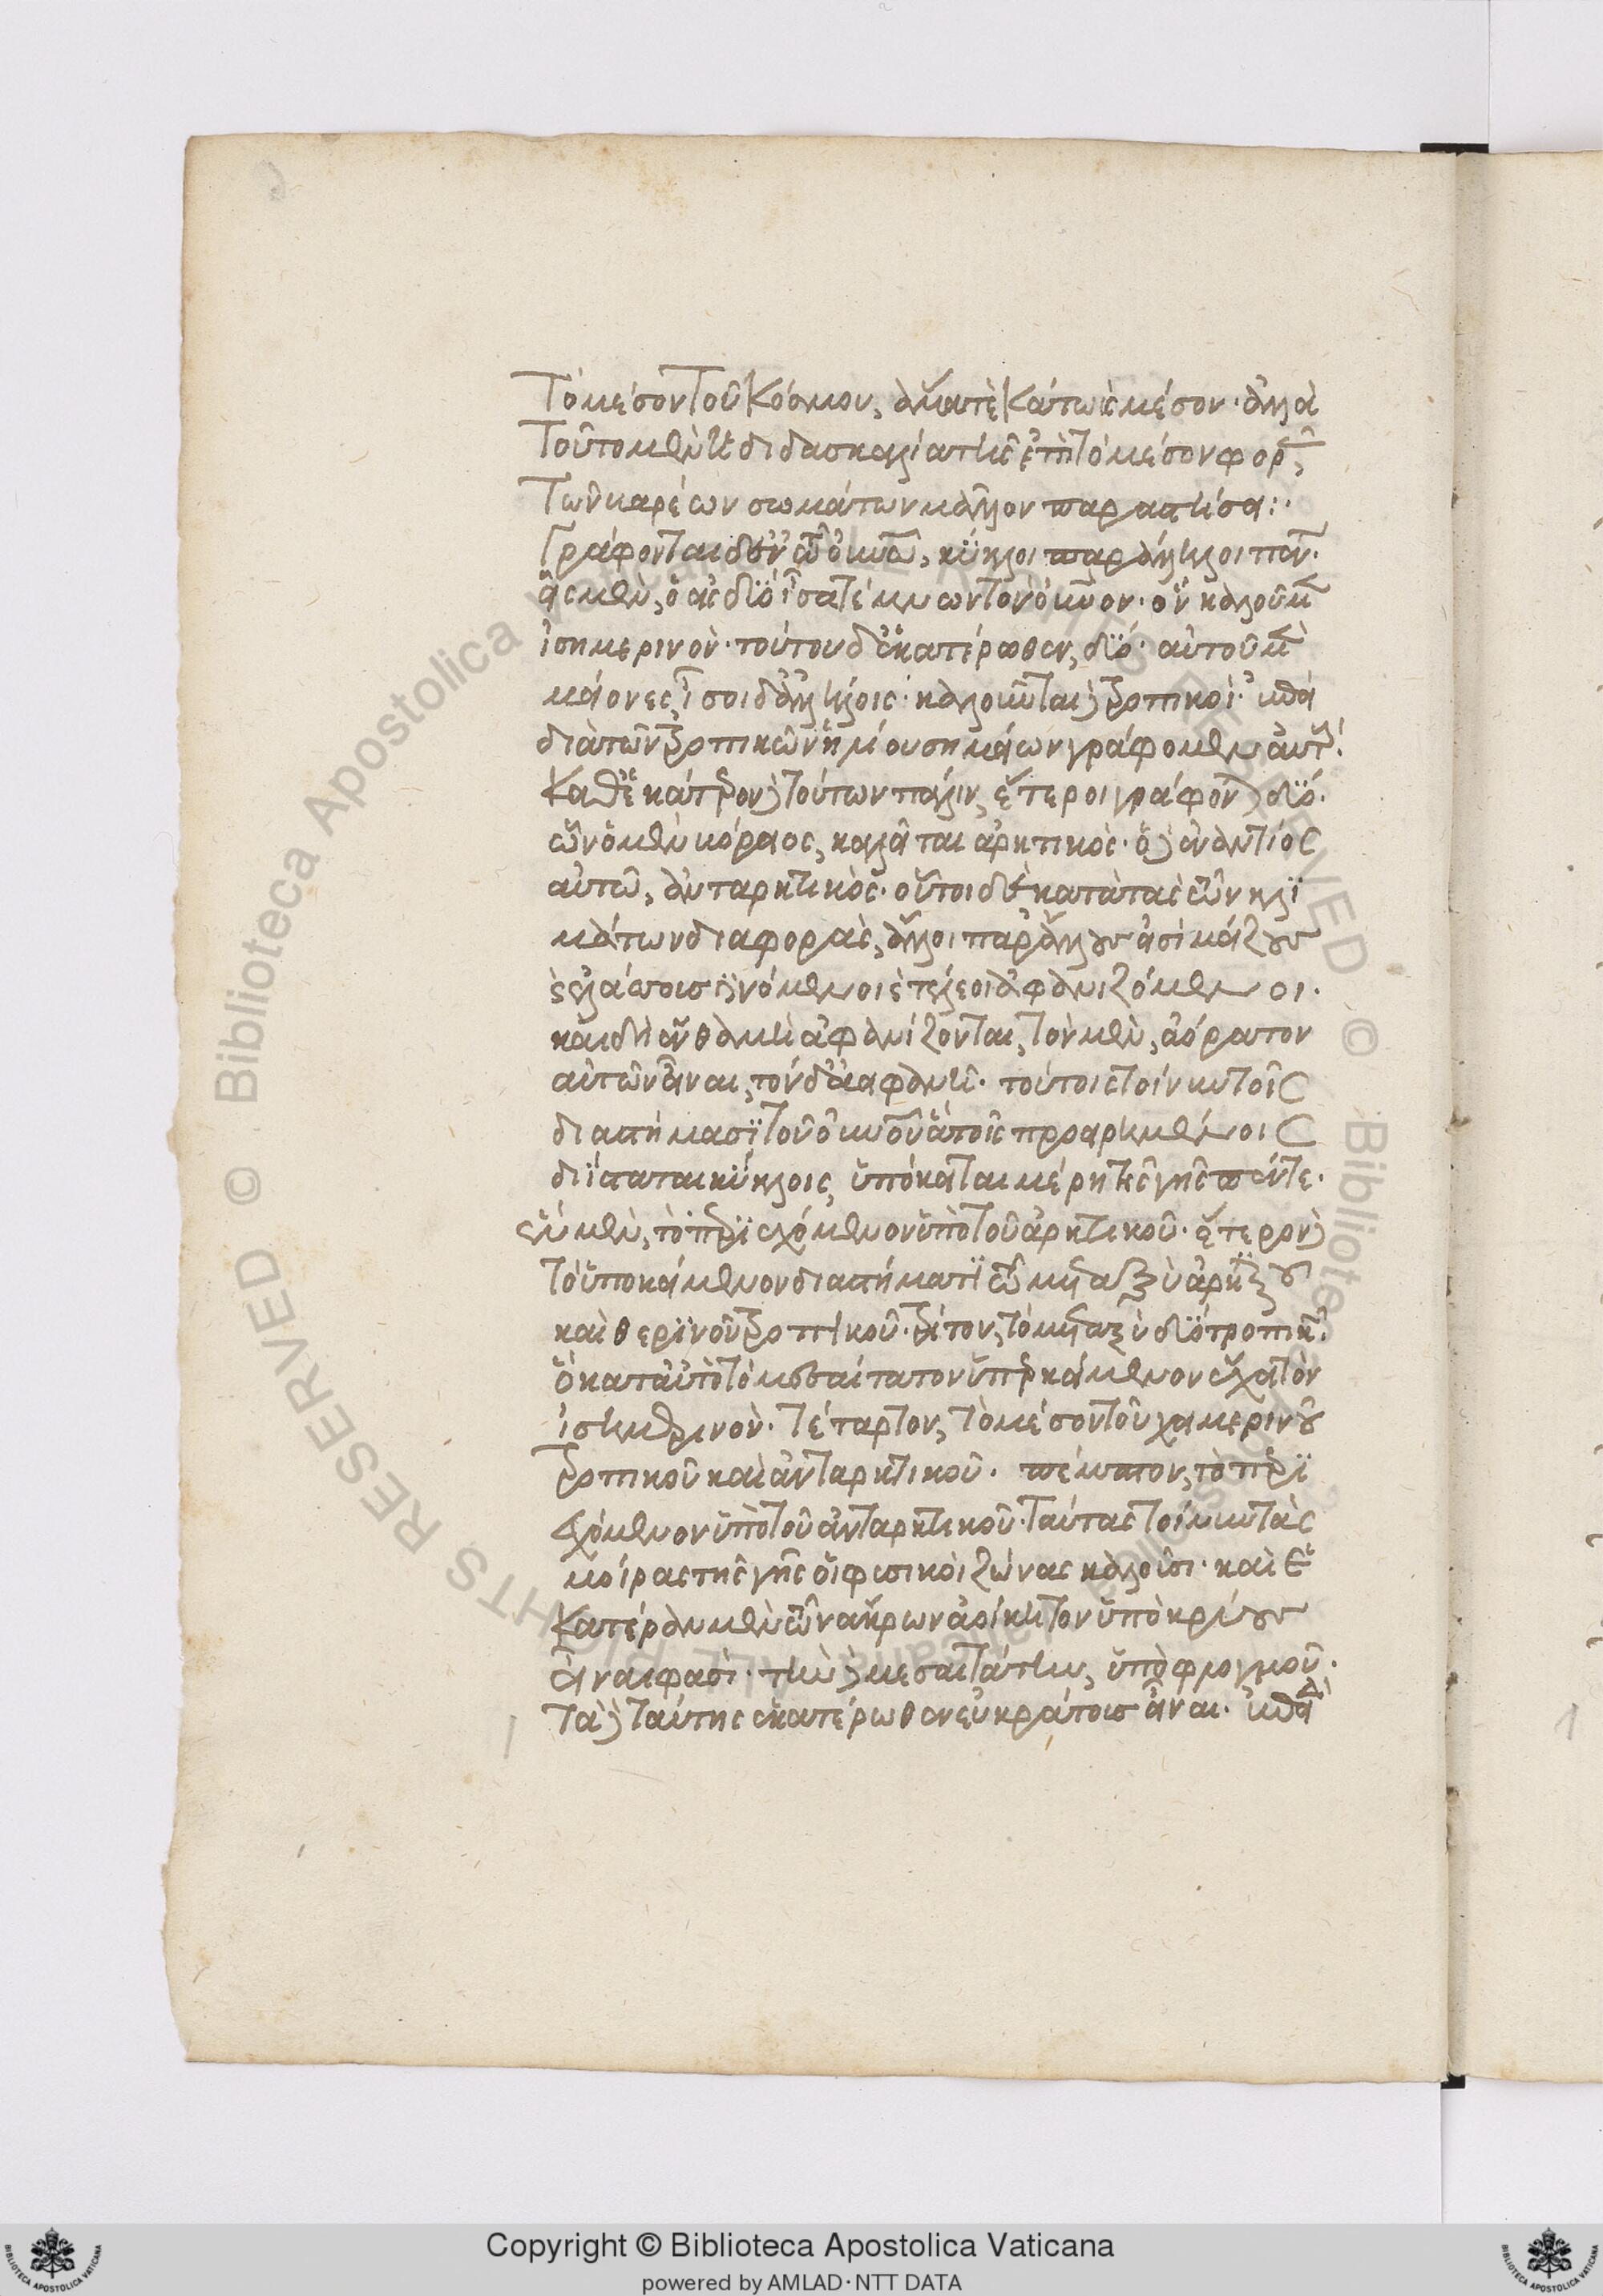 Τὸ μέσον τοῦ κόσμου, ἅμα τὲ κάτω ἐ μέσον. ἀλλὰ
τοῦτο μὲν ἡ διδασκαλία τῆς ἐπὶ τὸ μέσον φορᾶς
τῶν βαρέων σωμάτων μᾶλλον παραστήσει:
Γράφονται δὲ ἐν τῷ οὐρανῷ, κύκλοι παράλληλοι πέντε.
εἷς μὲν, ὁ εἰς δύο ἴσα τέμνων τὸν οὐρανον. ὃν καλοῦμεν
ἰσημερινὸν. τούτου δ' ἑκατέρωθεν, δύο. αὐτοῦ μὲν
μείονες, ἴσοι δ' ἀλλήλοις. καλοῦνται δὲ τροπικοὶ. ἐπεὶ
διὰ τῶν τροπικῶν ἡλίου σημείων γράφομεν αὐτούς.
καθ' ἑκάτερον δὲ τούτων πάλιν, ἕτεροι γράφονται δύο.
ὧν ὁ μὲν βόρειος, καλεῖται ἀρκτικὸς. ὁ δὲ ἐναντίος
αὐτῷ, ἀνταρκτικὸς. οὗτοι δὲ κατὰ τὰς τῶν κλι
μάτων διαφορὰς, ἄλλοι παρ' ἄλλοις εἰσὶ μείζους
ἐ ἐλάττους γινόμενοι ἐ τέλεον ἀφανιζόμενοι.
καὶ δὴ ἔνθα μὴ ἀφανίζονται, τὸν μὲν, ἀόρατον
αὐτῶν εἶναι, τὸν δ' ἀειφανῆ. τούτοις τοίνυν τοῖς
διαστήμασι τοῦ οὐρανοῦ ἃ τοῖς προειρημένοις
διίσταται κύκλοις, ὑπόκειται μέρη τῆς γῆς πέντε.
ἓν μὲν, τὸ περιεχόμενον ὑπὸ τοῦ ἀρκτικοῦ. ἕτερον δὲ
τὸ ὑποκείμενον διαστήματι τῷ μεταξὺ ἀρκτικοῦ
καὶ θερινοῦ τροπικοῦ. τρίτον, τὸ μεταξὺ δύο τροπικῶν.
ὃ κατ' αὐτὸ τὸ μεσαίτατον ὑπερκείμενον ἔχει τὸν
ἰσημερινὸν. τέταρτον, τὸ μέσον τοῦ χειμερινοῦ
τροπικοῦ καὶ ἀνταρκτικοῦ. πέμπτον, τὸ περι
εχόμενον ὑπὸ τοῦ ἀνταρκτικοῦ. ταύτας τοίνυν τὰς
μοίρας τῆς γῆς οἱ φυσικοὶ ζώνας καλοῦσι. καὶ ἑ
κατέραν μὲν τῶν ἄκρων ἀοίκητον ὑπὸ κρύους
εἶναι φασὶ. τὴν δὲ μεσαιτάτην, ὑπὸ φλογμοῦ.
τὰς δὲ ταύτης ἑκατέρωθεν εὐκράτους εἶναι. ἐπειδὴ